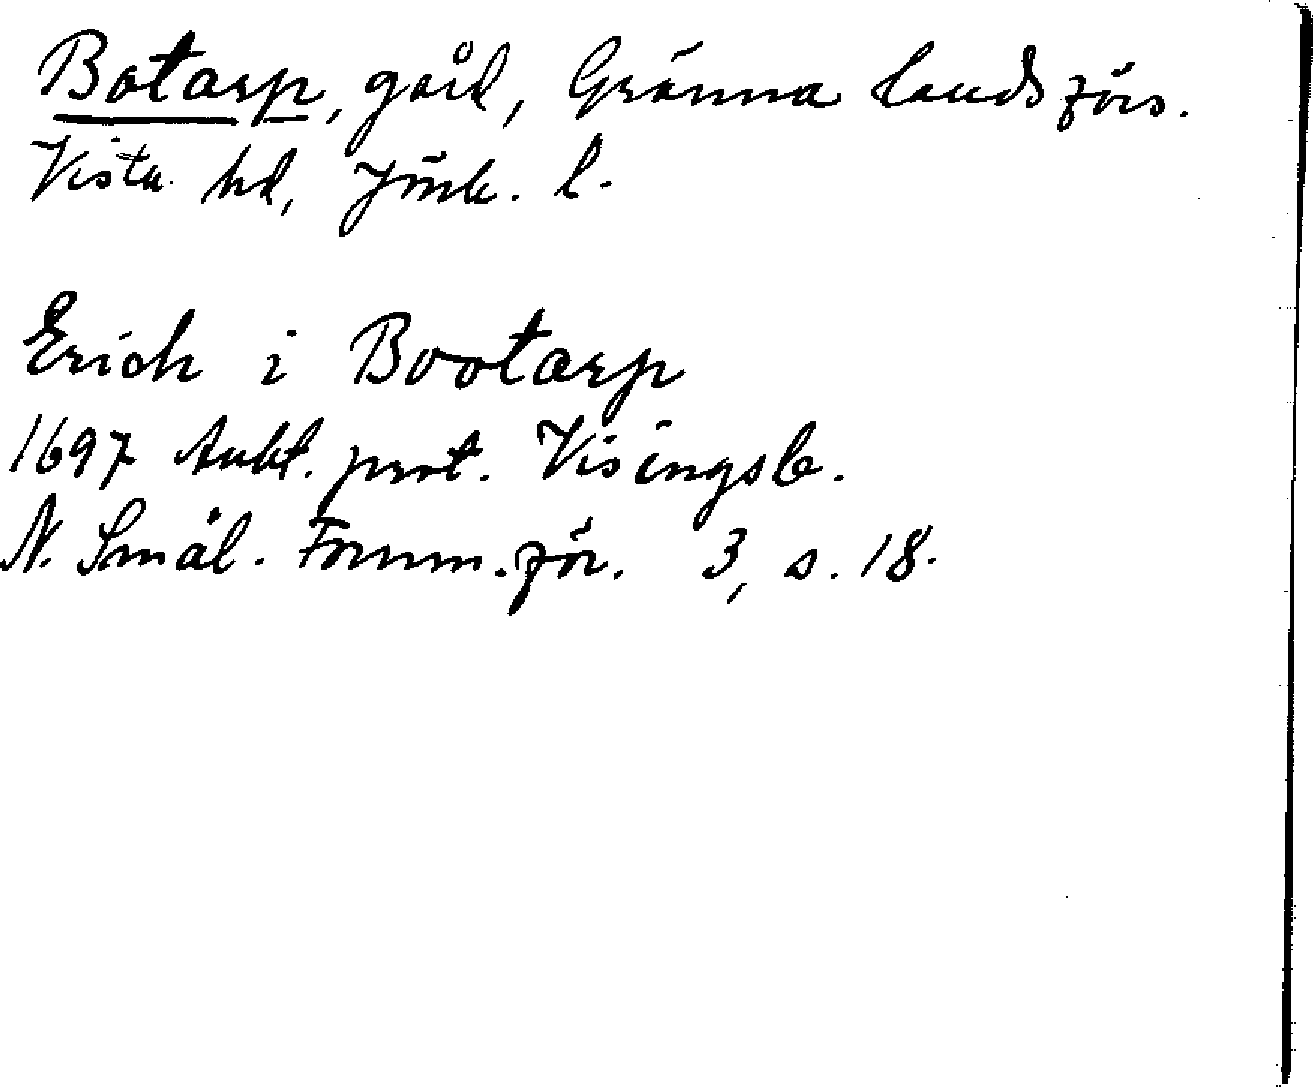 Botarp, gård, Gränna landsförs.
Vista hd, Jönk. l.
Erich i Bootarp
1697 Aukt. prot. Visingsb.
N. Smål. Fornm. för. 3, s. 18.